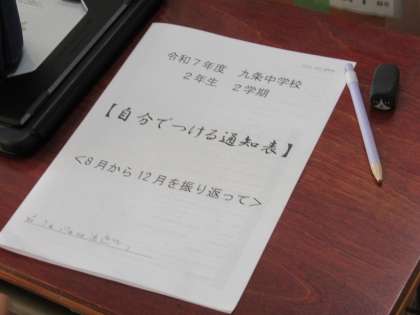 令和７年度　九条中学校
２年生　２学期
【自分でつける通知表】
＜8月から12月を振り返って＞